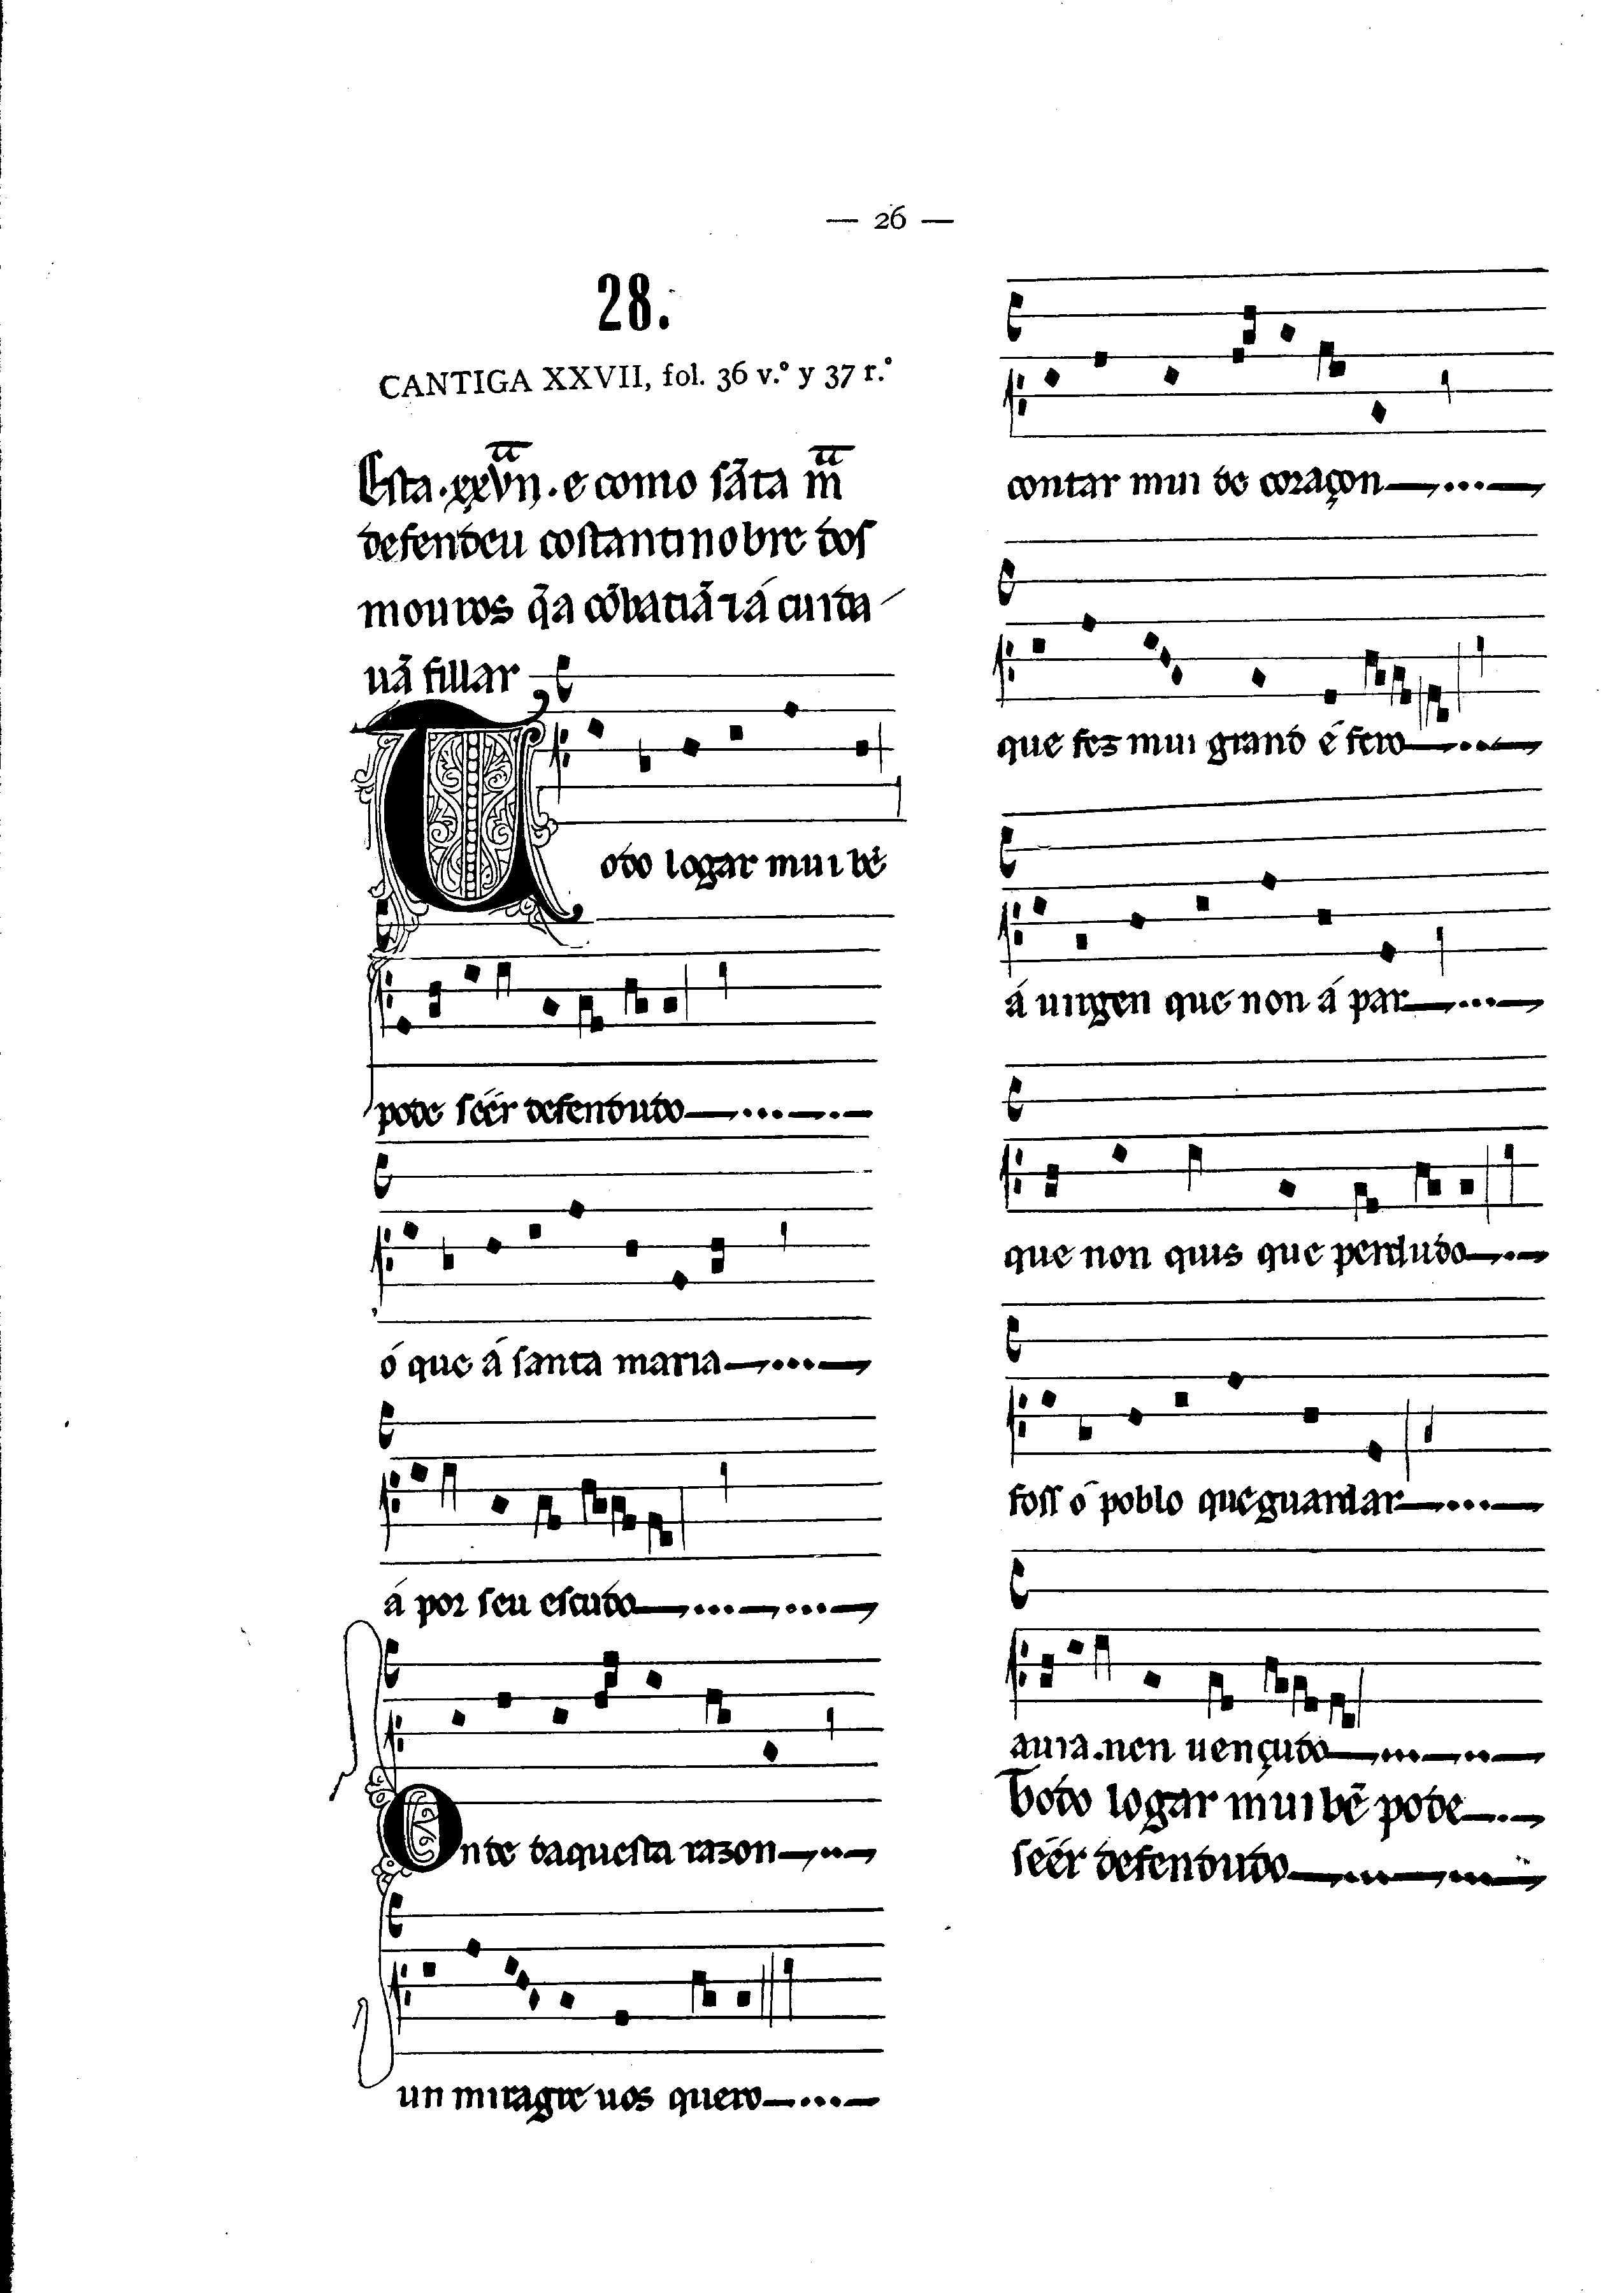 — 26 —
28.
CANTIGA XXVII, fol. 36 v.º y 37 r.º
Esta .xxvıȷ. e como sãta mã
defendeu costantinobre dos
mouros q̃a cõbatiã ⁊ á cuida
uã fillar
Todo logar mui bẽ
pode seér defendudo
ó que á santa maria
á por seu escudo
Onde daquesta razon
un miragre uos quero
contar mui de coraçon
que fez mui grand é fero
á uirgen que non á par
que non quis que perdudo
foss ó poblo que guardar
auia. nen uençudo
Todo logar mui bẽ pode
seér defendudo